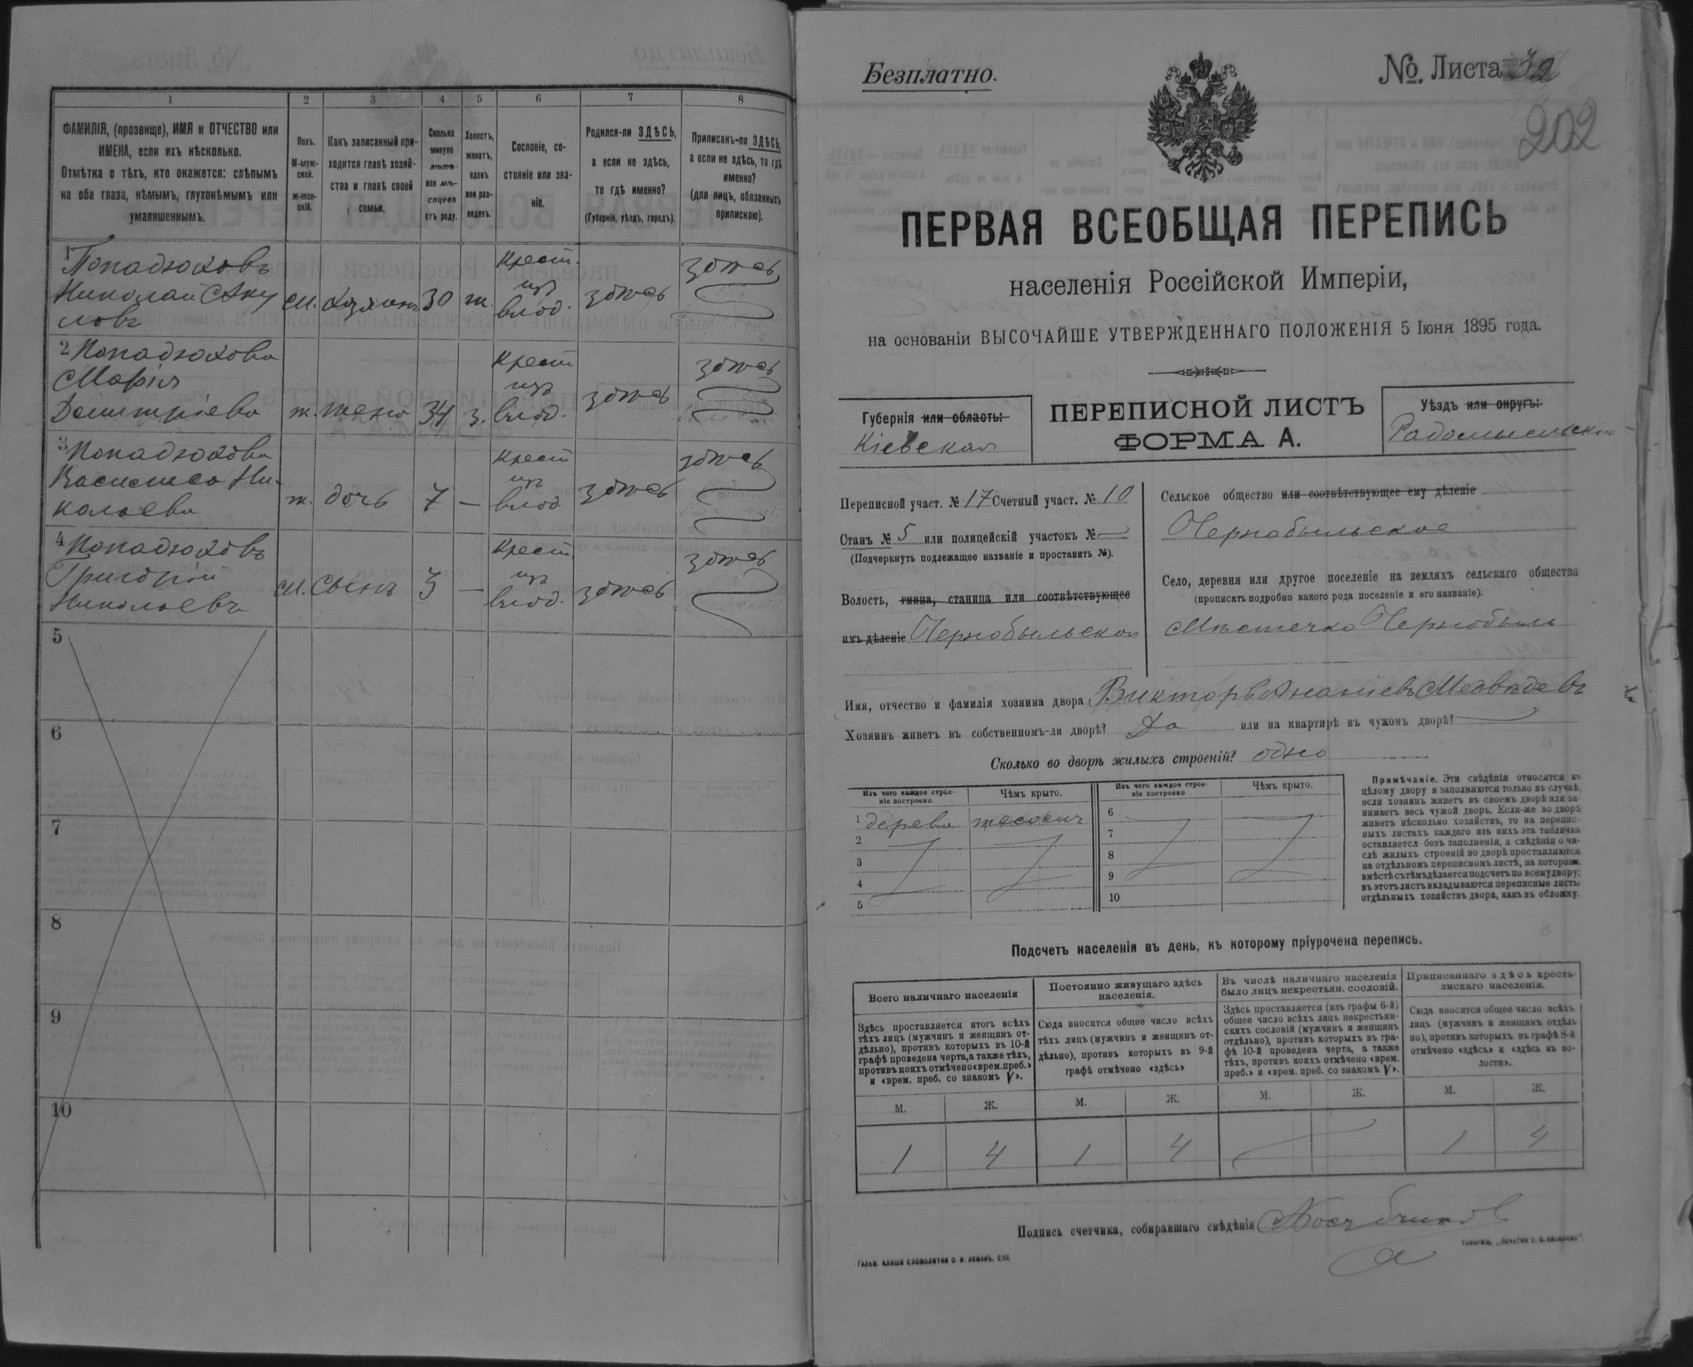 1 2 3 4 5 6 7 8
ФАМИЛІЯ, (прозвище), ИМЯ и ОТЧЕСТВО или
ИМЕНА, если ихъ нѣсколько.
Отмѣтка о тѣхъ, кто окажется: слѣпымъ
на оба глаза, нѣмымъ, глухонѣмымъ или
умалишеннымъ.
Полъ.
М-муж-
ской.
ж-жен-
скій.
Какъ записанный при-
ходится главѣ хозяй-
ства и главѣ своей
семьи.
Сколько
минуло
лѣтъ
или мѣ-
сяцевъ
отъ роду.
Холостъ,
женатъ,
вдовъ
или раз-
веденъ.
Сословіе, со-
стояніе или зва-
ніе.
Родился-ли ЗДѢСЬ,
а если не здѣсь,
то гдѣ именно?
(Губернія, уѣздъ, городъ).
Приписанъ-ли ЗДѢСЬ,
а если не здѣсь, то гдѣ
именно?
(для лицъ, обязанныхъ
припискою).
1 Попадюковъ
Николай
м. хозяинъ 30 ж. крест. изъ влад. здѣсь здѣсь
2 Попадюкова
Марія
Дмитріева
ж. жена 34 з. крест изъ влад. здѣсь здѣсь
3 Попадюкова
Василиса Ни-
колаева
ж. дочь 7 — крест изъ влад. здѣсь здѣсь
4 Попадюковъ
Григорій
Николаевъ
м. сынъ 3 — крест изъ влад. здѣсь здѣсь
5
6
7
8
9
10
Безплатно.
№ Листа 32
202
ПЕРВАЯ ВСЕОБЩАЯ ПЕРЕПИСЬ
населенія Россійской Имперіи,
на основаніи ВЫСОЧАЙШЕ УТВЕРЖДЕННАГО ПОЛОЖЕНІЯ 5 Іюня 1895 года.
Губернія или область:
Кіевская
ПЕРЕПИСНОЙ ЛИСТЪ
ФОРМА А.
Уѣздъ или округъ:
Радомысльскій
Переписной участ. № 17 Счетный участ. № 10
Станъ № 5 или полицейскій участокъ № —
(Подчеркнуть подлежащее названіе и проставить №).
Волость, гмина, станица или соотвѣтствующее
имъ дѣленіе Чернобыльская
Сельское общество или соотвѣтствующее ему дѣленіе
Чернобыльское
Село, деревня или другое поселеніе на земляхъ сельскаго общества
(прописать подробно какого рода поселеніе и его названіе).
Мѣстечко Чернобыль
Имя, отчество и фамилія хозяина двора Викторъ Ананіевъ Медвѣдевъ
Хозяинъ живетъ въ собственномъ-ли дворѣ? Да или на квартирѣ въ чужомъ дворѣ? —
Сколько во дворѣ жилыхъ строеній? одно
Изъ чего каждое строе-
ніе построено
Чѣмъ крыто.
Изъ чего каждое строе-
ніе построено
Чѣмъ крыто.
1 дерева тесомъ
2
3
4
5
6
7
8
9
10
Примѣчаніе. Эти свѣдѣнія относятся къ
цѣлому двору и заполняются только въ случаѣ,
если хозяинъ живетъ въ своемъ дворѣ или за-
нимаетъ весь чужой дворъ. Если-же во дворѣ
живетъ нѣсколько хозяйствъ, то на перепис-
ныхъ листахъ каждаго изъ нихъ эта табличка
оставляется безъ заполненія, а свѣдѣнія о чи-
слѣ жилыхъ строеній во дворѣ проставляются
на отдѣльномъ переписномъ листѣ, на которомъ
вмѣстѣ съ тѣмъ дѣлается подсчетъ по всему двору;
въ этотъ листъ вкладываются переписные листы
отдѣльныхъ хозяйствъ двора, какъ въ обложку.
Подсчетъ населенія въ день, къ которому пріурочена перепись.
Всего наличнаго населенія
Здѣсь проставляется итогъ всѣхъ
тѣхъ лицъ (мужчинъ и женщинъ от-
дѣльно), противъ которыхъ въ 10-й
графѣ проведена черта, а также тѣхъ,
противъ коихъ отмѣчено «врем. преб.»
и «врем. преб. со знакомъ V».
Постоянно живущаго здѣсь
населенія.
Сюда вносится общее число всѣхъ
тѣхъ лицъ (мужчинъ и женщинъ от-
дѣльно), противъ которыхъ въ 9-й
графѣ отмѣчено «здѣсь»
Въ числѣ наличнаго населенія
было лицъ некрестьян. сословій.
Здѣсь проставляется (изъ графы 6-й)
общее число всѣхъ лицъ некрестьян-
скихъ сословій (мужчинъ и женщинъ
отдѣльно), противъ которыхъ въ гра-
фѣ 10-й проведена черта, а также
тѣхъ, противъ коихъ отмѣчено «врем.
преб.» и «врем. преб. со знакомъ V».
Приписаннаго здѣсь кресть-
янскаго населенія.
Сюда вносится общее число всѣхъ
лицъ (мужчинъ и женщинъ отдѣль-
но), противъ которыхъ въ графѣ 8-й
отмѣчено «здѣсь» и «здѣсь въ во-
лости».
М. Ж. М. Ж. М. Ж. М. Ж.
1 4 1 4 — 1 4
Подпись счетчика, собиравшаго свѣдѣнія
ГАЛЬВ. КЛИШЕ СЛОВОЛИТНИ О. И. ЛЕМАНЪ, СПБ.